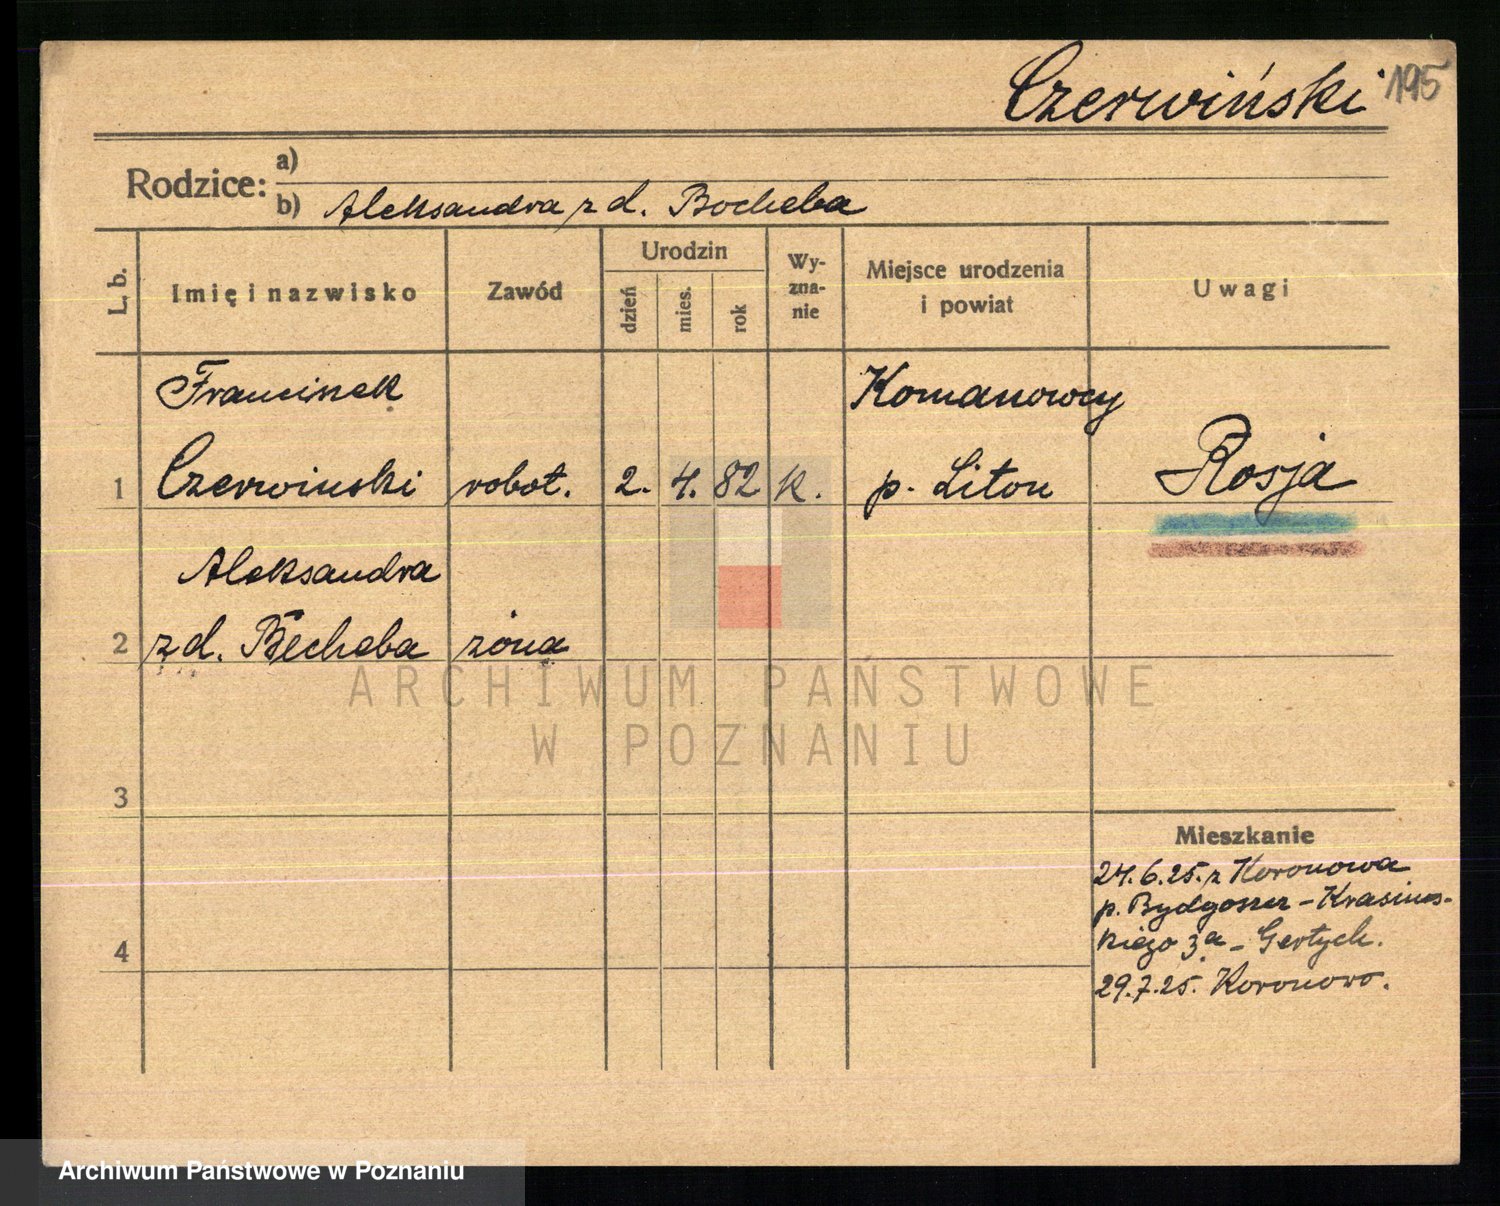 Czerwiński 195
Rodzice: a)
b) Aleksandra z d. Bocheba
L. b.
Imię i nazwisko
Zawód
Urodzin
dzień
mies.
rok
Wy-
zna-
nie
Miejsce urodzenia
i powiat
Uwagi
Franciszek Komanowcy
1 Czerwinski robot. 2. 4. 82 k. p. Liton Rosja
Aleksandra
2 z d. Becheba żona
ARCHIWUM PAŃSTWOWE
W POZNANIU
3
Mieszkanie
24.6.25. z Koronowa
p. Bydgoszcz - Krasins-
4 kiego 3a - Gertych.
29.7.25. Koronowo.
Archiwum Państwowe w Poznaniu